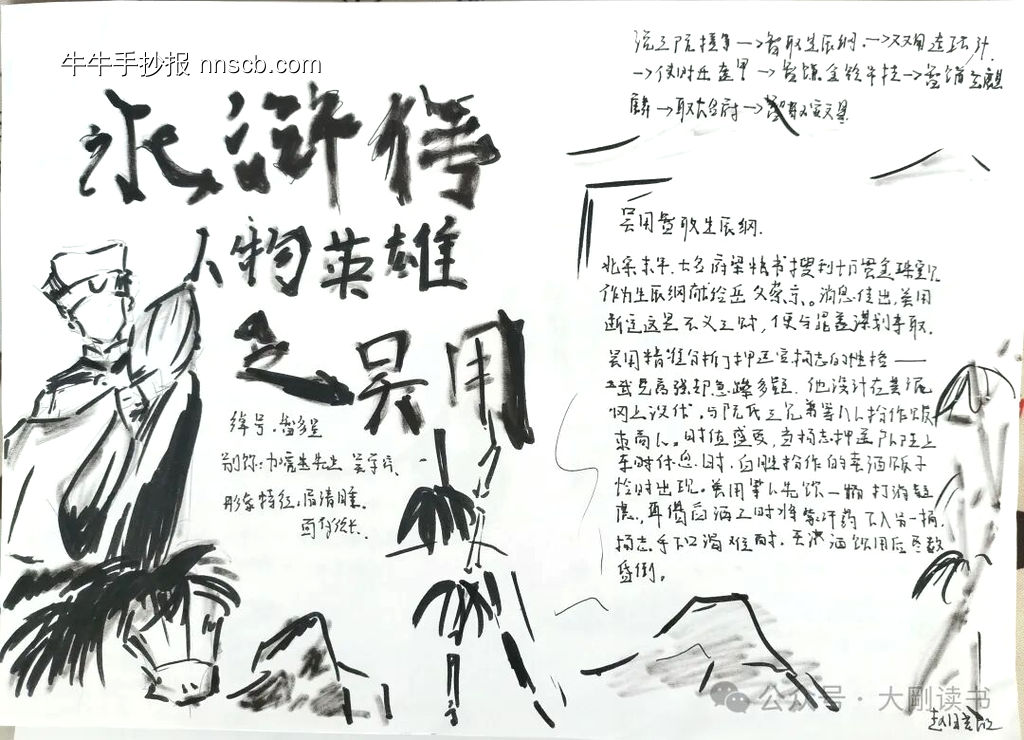 牛牛手抄报 nnscb.com
水浒传
人物英雄
之吴用
绰号:智多星
别称:加亮先生 吴学究
形象特征:眉清目秀
面白须长
说三阮撞筹→智取生辰纲→双用连环计
→使时迁盗甲→智赚金铃吊挂→智赚玉麒
麟→取大名府→智取文县
吴用智取生辰纲
北宋末年,大名府梁中书搜刮十万贯金珠宝贝
作为生辰纲献给岳父蔡京。消息传出,吴用
断定这是不义之财,便与晁盖谋划夺取。
吴用精准分析了押运官杨志的性格——
武艺高强却急躁多疑。他设计在黄泥
冈上设伏,与阮氏三兄弟等八人扮作贩
枣商人。时值盛夏,当杨志押送队陛上
车时休息时,白胜扮作的卖酒贩子
恰时出现。吴用等人先饮一桶打消疑
虑,再借舀酒之时将蒙汗药下入另一桶,
杨志手下口渴难耐,买来酒饮用后尽数
昏倒。
公众号·大刚读书